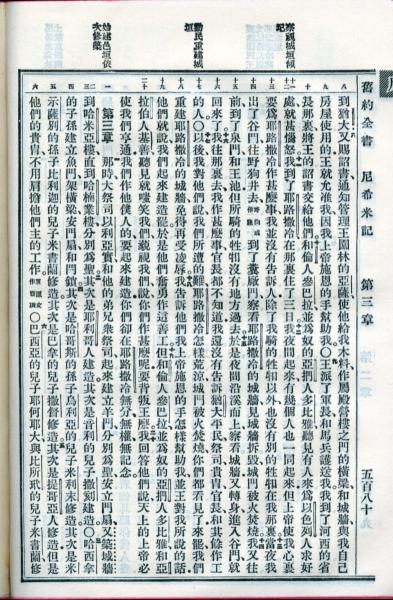 舊約全書 尼希米記 第三章 五百八十
到猶大又賜詔書通知管理王園林的亞薩使他給我木料作屬殿營樓之門的橫梁和城牆與我自己
房屋使用的王就允准我因我上帝施恩的手幫助我○王派了軍長和馬兵護送我我到了河西的省
長那裏將王的詔書交給他們和倫人參巴拉並為奴的亞捫人多比雅聽見有人來為以色列人求好
處就甚惱怒我到了耶路撒冷在那裏住了三日我夜間起來有幾個人也一同起來但上帝使我心裏
要為耶路撒冷作甚麼事我並沒有告訴人除了我騎的牲牲以外也沒有別的牲牲在我那裏當夜我
出了谷門往野狗井去到了糞廠門察看耶路撒冷的城牆見城牆拆毀城門被火焚燒我又往
前到了泉門和王池但所騎的牲牲沒有地方過去於是夜間沿溪而上察看城牆又轉身進入谷門就
回來了我往那裏去我作甚麼事官長都不知道我還沒有告訴猶大平民祭司貴冑官長和其餘作工
的人○以後我對他們說我們所遭的難耶路撒冷怎樣荒涼城門被火焚燒你們都看見了來罷我們
重建耶路撒冷的城牆免得再受凌辱我告訴他們我上帝施恩的手怎樣幫助我並王對我所說的話
他們就說我們起來建造罷於是他們奮勇作這善工但和倫人參巴拉並為奴的亞捫人多比雅和亞
拉伯人基善聽見就嗤笑我們藐視我們說你們作甚麼呢要背叛王麼我回答他們說天上的上帝必
使我們亨通我們作他僕人的要起來建造你們卻在耶路撒冷無分無權無記念
第三章 那時大祭司以利亞實和他的弟兄眾祭司起來建立羊門分別為聖安立門扇又築城牆
到哈米亞樓直到哈楠業樓分別為聖其次是耶利哥人建造其次是音利的兒子撒刻建造○哈西拿
的子孫建立魚門架橫梁安門扇和門鎖其次是哈哥斯的孫子烏利亞的兒子米利末修造其次是米
示薩別的孫子比利迦的兒子米書蘭修造其次是巴拿的兒子撒督修造其次是提哥亞人修造但是
他們的貴冑不用肩擔他們主的工作○巴西亞的兒子耶何耶大與比所玳的兒子米書蘭修